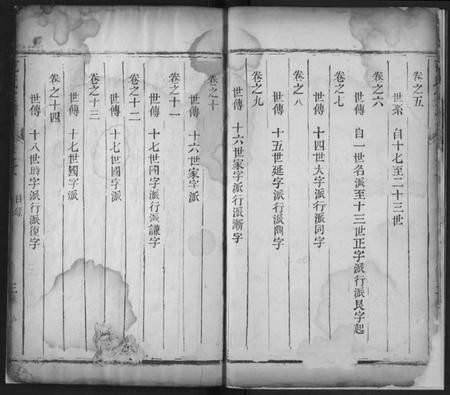 卷之五
世系 自十七至二十三世
卷之六
世傳 自一世名派至十三世正字派行派艮字起
卷之七
世傳 十四世大字派行派同字
卷之八
世傳 十五世延字派行派鼎字
卷之九
世傳 十六世家字派行派漸字
卷之十
世傳 十六世家字派
卷之十一
世傳 十七世國字派行派謙字
卷之十二
世傳 十七世國字派
卷之十三
世傳 十七世國字派
卷之十四
世傳 十八世時字派行派復字
目錄
三